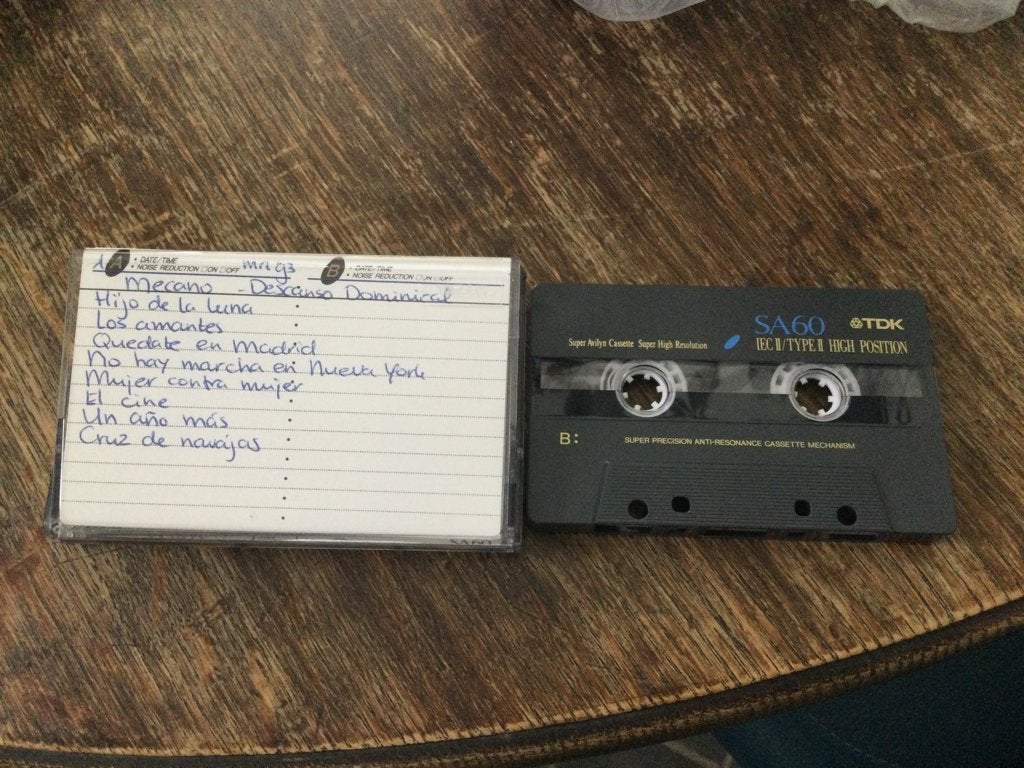 1 A • DATE/TIME
• NOISE REDUCTION □ON □OFF Mrt 93
B • DATE/TIME
• NOISE REDUCTION □ON □OFF
Mecano - Descanso Dominical
Hijo de la luna
Los amantes
Quedate en Madrid
No hay marcha en Nueva York
Mujer contra mujer
El cine
Un año más
Cruz de navajas
SA60
SA60 TDK
Super Avilyn Cassette Super High Resolution
IEC II/TYPE II HIGH POSITION
B:
SUPER PRECISION ANTI-RESONANCE CASSETTE MECHANISM